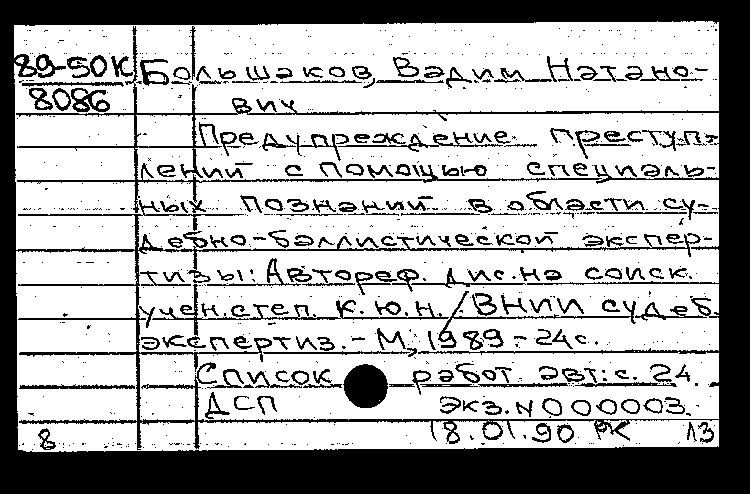 89-50К Большаков, Вадим Натано-
8086 вич
Предупреждение преступ-
лений с помощью специаль-
ных познаний в области су-
дебно-баллистической экспер-
тизы: Автореф. дис. на соиск.
учен. степ. к.ю.н. / ВНИИ судеб.
экспертиз. - М., 1989. - 24 с.
Список работ авт.: с. 24.
ДСП Экз. N 000003.
8 18.01.90 РК 13